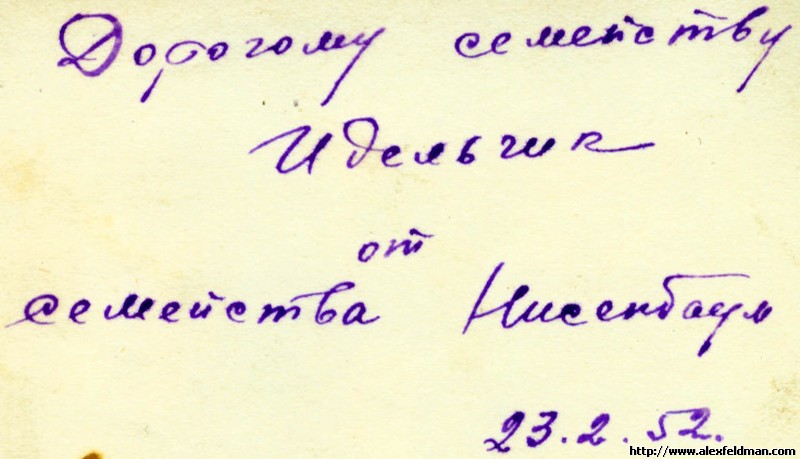 Дорогому семейству
Идельчик
от
семейства Нисенбаум
23.2.52.
http://www.alexfeldman.com